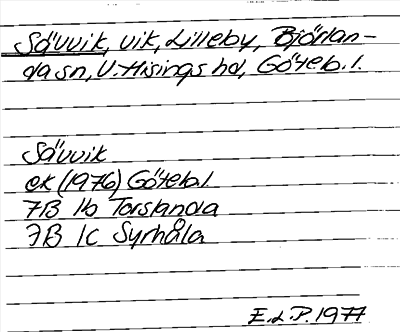 Sävvik, vik, Lilleby, Björlan-
da sn, V. Hisings hd, Göteb. l.
Sävvik
ek (1976) Göteb. l
7B 1b Torslanda
7B 1c Syrhåla
E.L.P. 1977